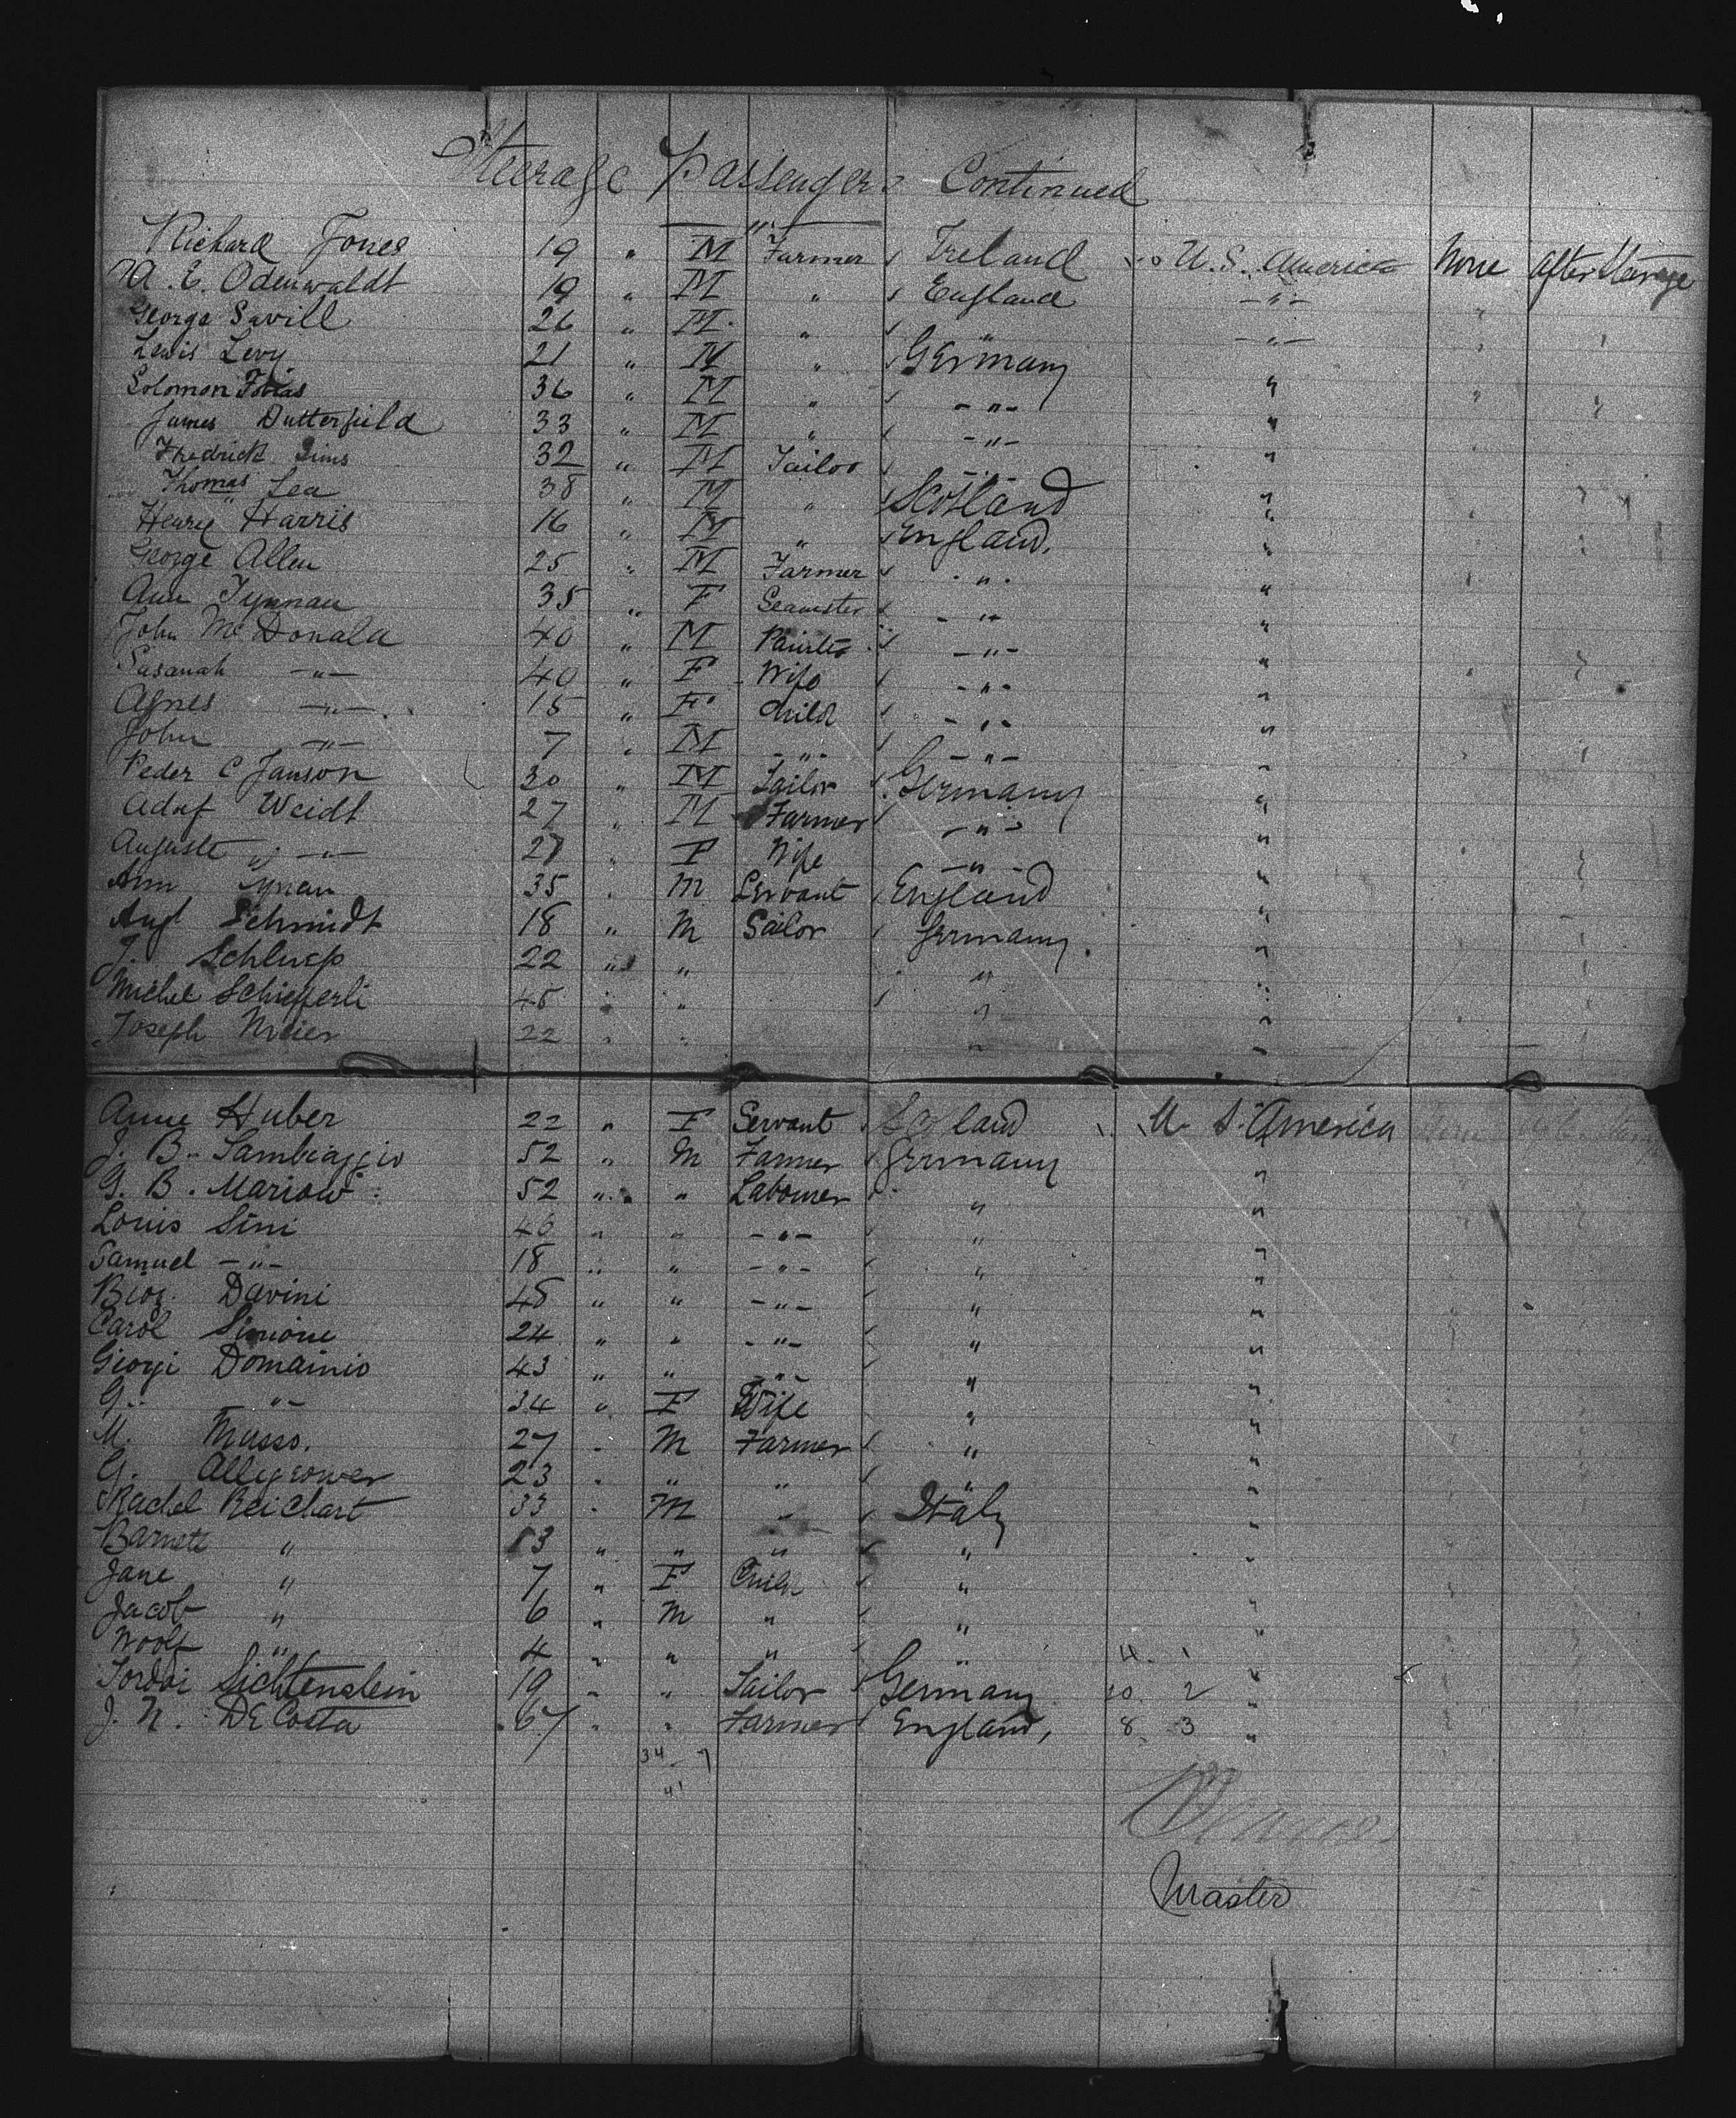 Steerage Passengers Continued
— " —
Richard Jones 19 " M Farmer Ireland U.S. America None After Steerage
A. E. Odenwaldt 19 " M " England — " —
George Savill 26 " M. " " — " —
Lewis Levy 21 " M " Germany
Solomon Tobias 36 " M " - " - "
James Dutterfield 33 " M " - " - "
Fredrick Sims 32 " M Tailor "
Thomas Lea 38 " M " Scotland "
Henry Harris 16 " M " England. "
George Allen 25 " M Farmer - " - "
Ann Tynnan 35 " F Seamster - " - "
John McDonald 40 " M Painter - " - "
Susanah - " - 40 " F Wife - " - "
Agnes - " - 15 " F Child - " - "
John - " - 7 " M - " - - " - "
Peder C Janson 30 " M Tailor Germany "
Adolf Weidt 27 " M Farmer - " - "
Auguste - " - 27 " F Wife - " "
Ann Tynan 35 " M Servant England "
Augt Schmidt 18 " M Sailor Germany "
J. Schluep 22 " " " "
Michel Schieferli 45 " " " "
Joseph Meier 22 " " " "
Anne Huber 22 " F Servant U. S. America
J. B. Sambiaggio 52 " M Farmer Germany "
G. B. Mariow 52 " " Labourer " "
Louis Sini 46 " " - " - " "
Samuel - " - 18 " " - " - " "
Davini 45 " " - " - " "
Carol Simone 24 " " - " - " "
Giorgi Domainio 43 " " - " - " "
G. - " - 34 " F Wife " "
M. Musso. 27 " M Farmer " "
G. 23 " " " " "
Rachel Reichart 33 " M " Italy "
Barnett " 13 " " " " "
Jane " 7 " F Child " "
Jacob " 6 " M " " "
Woolf " 4 " " " " 4. 1 "
Lichtenstein 19 " " Tailor Germany 10. 2 "
J. N. DeCosta 67 " " Farmer England, 8. 3 "
34 7
41
Master